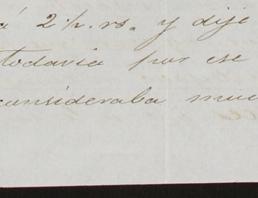 á 2 h.rs. y dije
todavia por ese
consideraba mue